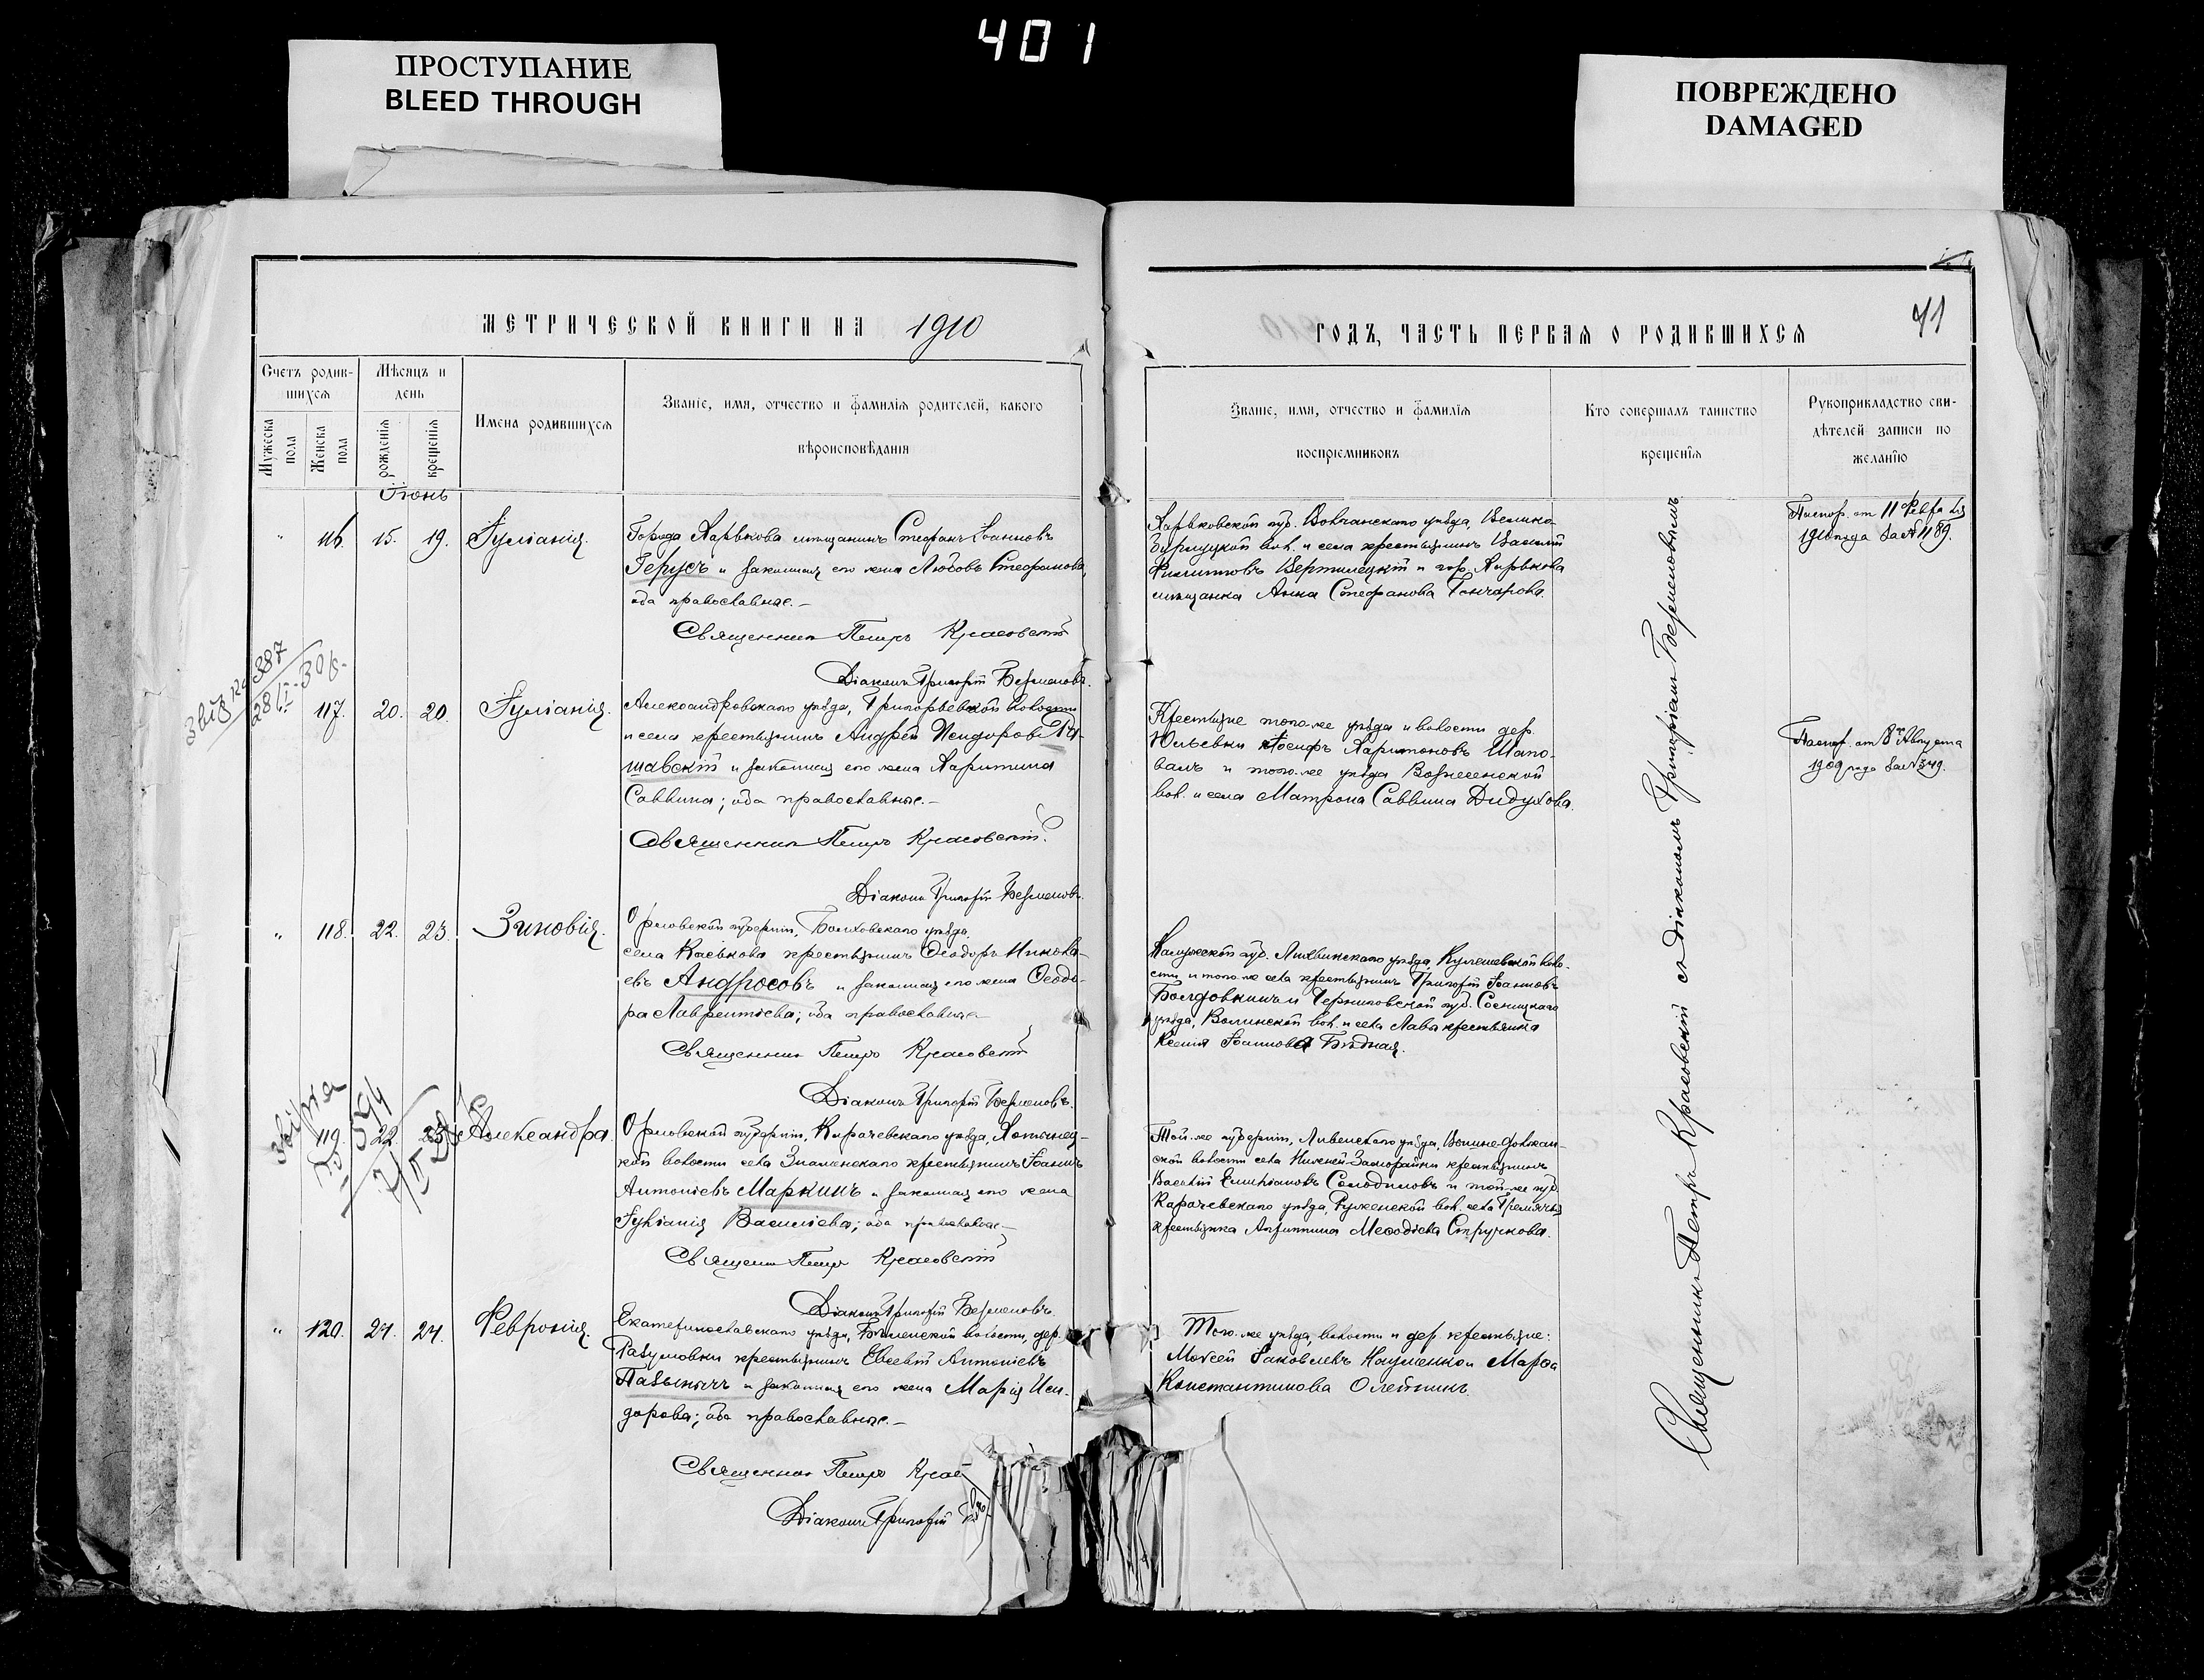 401
ПРОСТУПАНИЕ
BLEED THROUGH
ПОВРЕЖДЕНО
DAMAGED
МЕТРИЧЕСКОЙ КНИГИ НА 1910
ГОДЪ, ЧАСТЬ ПЕРВАЯ О РОДИВШИХСЯ
41
Счетъ родив-
шихся
Мужеска пола
Женска пола
Мѣсяцъ и
день
рожденія
крещенія
Имена родившихся
Званіе, имя, отчество и фамилія родителей, какого
вѣроисповѣданія
Званіе, имя, отчество и фамилія
воспріемниковъ
Кто совершалъ таинство
крещенія
Рукоприкладство сви-
дѣтелей записи по
желанію
Іюнь
" 116. 15. 19. Іуліанія.
Города Харькова мѣщанинъ Стефанъ Іоанновъ
Герусъ и законная его жена Любовь Стефанова,
оба православные.–
Священникъ Петръ Красовскій
Діаконъ Григорій Беземеновъ.
Харьковской губ. Волчанскаго уѣзда, Велико-
Бурлуцкой вол. и села крестьянинъ Василій
Филипповъ Вертилецкій и гор. Харькова
мѣщанка Анна Стефанова Гончарова.
Паспор. от 11 Февраля
1910 года за № 1189.
117. 20. 20. Іуліанія.
Александровскаго уѣзда, Григорьевской волости
и села крестьянинъ Андрей Исидоровъ
шавскій и законная его жена Харитина
Саввина; оба православные.–
Священникъ Петръ Красовскій.
Діаконъ Григорій Беземеновъ.
Крестьяне того-же уѣзда и волости дер.
Юльевки Іосифъ Харитоновъ Шапо-
валъ и того-же уѣзда Вознесенской
вол. и села Матрона Саввина Дидухова.
Паспор. от 8 Августа
1909 года за № 349.
" 118. 22. 23. Зиновія.
Орловской губерніи, Болховскаго уѣзда,
села Каськова крестьянинъ Ѳеодоръ Никола-
евъ Андросовъ и законная его жена Ѳеодо-
ра Лаврентіева; оба православные–
Священникъ Петръ Красовскій
Діаконъ Григорій Беземеновъ.
Калужской губ. Лихвинскаго уѣзда, Кулешевской воло-
сти и того-же села крестьянинъ Григорій Іоанновъ
Болдовкинъ и Черниговской губ. Сосницкаго
уѣзда, Волинской вол. и села Лава крестьянка
Ксенія Іоаннова Бѣдная.
119. 22. Александра.
Орловской губерніи, Карачевскаго уѣзда,
кой волости села Знаменскаго крестьянинъ Іоаннъ
Антоніевъ Маркинъ и законная его жена
Іуліанія Василіева; оба православные–
Священ Петръ Красовскій
Діаконъ Григорій Беземеновъ.
Той-же губерніи, Ливенскаго уѣзда,
ской волости села Нижней-Замарайки крестьянинъ
Василій Емиліановъ Солодиловъ и той-же губ.
Карачевскаго уѣзда, Руженской вол. села
крестьянка Агриппина Меѳодіева Стручкова.
" 120. 24. 24. Февронія.
Екатеринославскаго уѣзда, Бѣленской волости, дер.
Разумовки крестьянинъ Евсевій Антоніевъ
и законная его жена Марія Иси-
дорова; оба православные.–
Священникъ Петръ Крас
Діаконъ Григорій
Того-же уѣзда, волости и дер. крестьяне:
Моисей Іаковлевъ Науменко и Марѳа
Константинова Олейникъ.
Священникъ Петръ Красовскій съ Діакономъ Григоріемъ Беземеновымъ